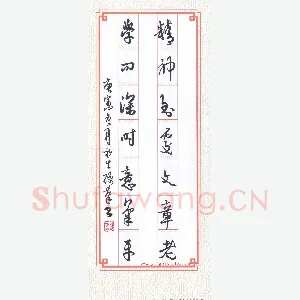 精神到處文章老
學問深時意氣平
庚寅 月
Shufawang.CN